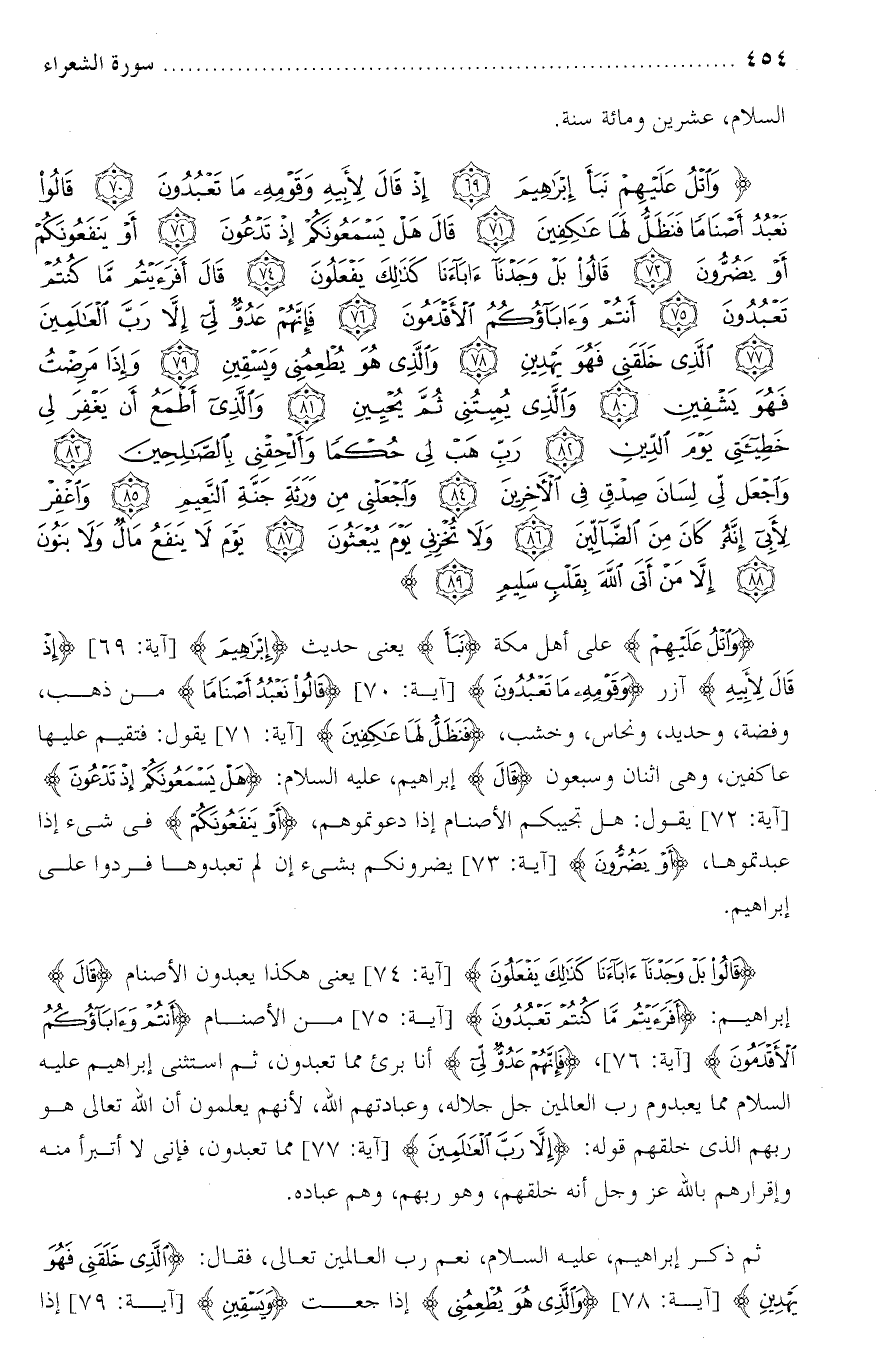 ٤٥٤ ........................................................................ سورة الشعراء
السلام، عشرين ومائة سنة.
﴿ وَٱتۡلُ عَلَيۡهِمۡ نَبَأَ إِبۡرَٰهِيمَ ٦٩ إِذۡ قَالَ لِأَبِيهِ وَقَوۡمِهِۦ مَا تَعۡبُدُونَ ٧٠ قَالُواْ
نَعۡبُدُ أَصۡنَامٗا فَنَظَلُّ لَهَا عَٰكِفِينَ ٧١ قَالَ هَلۡ يَسۡمَعُونَكُمۡ إِذۡ تَدۡعُونَ ٧٢ أَوۡ يَنفَعُونَكُمۡ
أَوۡ يَضُرُّونَ ٧٣ قَالُواْ بَلۡ وَجَدۡنَآ ءَابَآءَنَا كَذَٰلِكَ يَفۡعَلُونَ ٧٤ قَالَ أَفَرَءَيۡتُم مَّا كُنتُمۡ
تَعۡبُدُونَ ٧٥ أَنتُمۡ وَءَابَآؤُكُمُ ٱلۡأَقۡدَمُونَ ٧٦ فَإِنَّهُمۡ عَدُوّٞ لِّيٓ إِلَّا رَبَّ ٱلۡعَٰلَمِينَ
٧٧ ٱلَّذِي خَلَقَنِي فَهُوَ يَهۡدِينِ ٧٨ وَٱلَّذِي هُوَ يُطۡعِمُنِي وَيَسۡقِينِ ٧٩ وَإِذَا مَرِضۡتُ
فَهُوَ يَشۡفِينِ ٨٠ وَٱلَّذِي يُمِيتُنِي ثُمَّ يُحۡيِينِ ٨١ وَٱلَّذِيٓ أَطۡمَعُ أَن يَغۡفِرَ لِي
خَطِيٓـَٔتِي يَوۡمَ ٱلدِّينِ ٨٢ رَبِّ هَبۡ لِي حُكۡمٗا وَأَلۡحِقۡنِي بِٱلصَّٰلِحِينَ ٨٣
وَٱجۡعَل لِّي لِسَانَ صِدۡقٖ فِي ٱلۡأٓخِرِينَ ٨٤ وَٱجۡعَلۡنِي مِن وَرَثَةِ جَنَّةِ ٱلنَّعِيمِ ٨٥ وَٱغۡفِرۡ
لِأَبِيٓ إِنَّهُۥ كَانَ مِنَ ٱلضَّآلِّينَ ٨٦ وَلَا تُخۡزِنِي يَوۡمَ يُبۡعَثُونَ ٨٧ يَوۡمَ لَا يَنفَعُ مَالٞ وَلَا بَنُونَ
٨٨ إِلَّا مَنۡ أَتَى ٱللَّهَ بِقَلۡبٖ سَلِيمٖ ٨٩ ﴾
﴿وَٱتۡلُ عَلَيۡهِمۡ﴾ على أهل مكة ﴿نَبَأَ﴾ يعنى حديث ﴿إِبۡرَٰهِيمَ﴾ [آية: ٦٩] ﴿إِذۡ
قَالَ لِأَبِيهِ﴾ آزر ﴿وَقَوۡمِهِۦ مَا تَعۡبُدُونَ﴾ [آيـة: ٧٠] ﴿قَالُواْ نَعۡبُدُ أَصۡنَامٗا﴾ مـن ذهـب،
وفضة، وحديد، ونحاس، وخشب، ﴿فَنَظَلُّ لَهَا عَٰكِفِينَ﴾ [آية: ٧١] يقول: فتقيم عليها
عاكفين، وهى اثنان وسبعون ﴿قَالَ﴾ إبراهيم، عليه السلام: ﴿هَلۡ يَسۡمَعُونَكُمۡ إِذۡ تَدۡعُونَ﴾
[آية: ٧٢] يقول: هل تجيبكم الأصنام إذا دعوتموهم، ﴿أَوۡ يَنفَعُونَكُمۡ﴾ فى شىء إذا
عبدتموها، ﴿أَوۡ يَضُرُّونَ﴾ [آيـة: ٧٣] يضرونكم بشىء إن لم تعبدوهـا فـردوا علـى
إبراهيم.
﴿قَالُواْ بَلۡ وَجَدۡنَآ ءَابَآءَنَا كَذَٰلِكَ يَفۡعَلُونَ﴾ [آية: ٧٤] يعنى هكذا يعبدون الأصنام ﴿قَالَ﴾
إبراهيـم: ﴿أَفَرَءَيۡتُم مَّا كُنتُمۡ تَعۡبُدُونَ﴾ [آيـة: ٧٥] مـن الأصنـام ﴿أَنتُمۡ وَءَابَآؤُكُمُ
ٱلۡأَقۡدَمُونَ﴾ [آية: ٧٦]، ﴿فَإِنَّهُمۡ عَدُوّٞ لِّيٓ﴾ أنا برئ مما تعبدون، ثـم استثنى إبراهيـم عليـه
السلام مما يعبدوم رب العالمين جل جلاله، وعبادتهم الله، لأنهم يعلمون أن الله تعالى هـو
ربهم الذى خلقهم قوله: ﴿إِلَّا رَبَّ ٱلۡعَٰلَمِينَ﴾ [آية: ٧٧] مما تعبدون، فإنى لا أتـبرأ منـه
وإقرارهم بالله عز وجل أنه خلقهم، وهو ربهم، وهم عباده.
ثم ذكـر إبراهيـم، عليـه السـلام، نعـم رب العـالمين تعـالى، فقـال: ﴿ٱلَّذِي خَلَقَنِي فَهُوَ
يَهۡدِينِ﴾ [آيـة: ٧٨] ﴿وَٱلَّذِي هُوَ يُطۡعِمُنِي﴾ إذا جعـت ﴿وَيَسۡقِينِ﴾ [آيـة: ٧٩] إذا